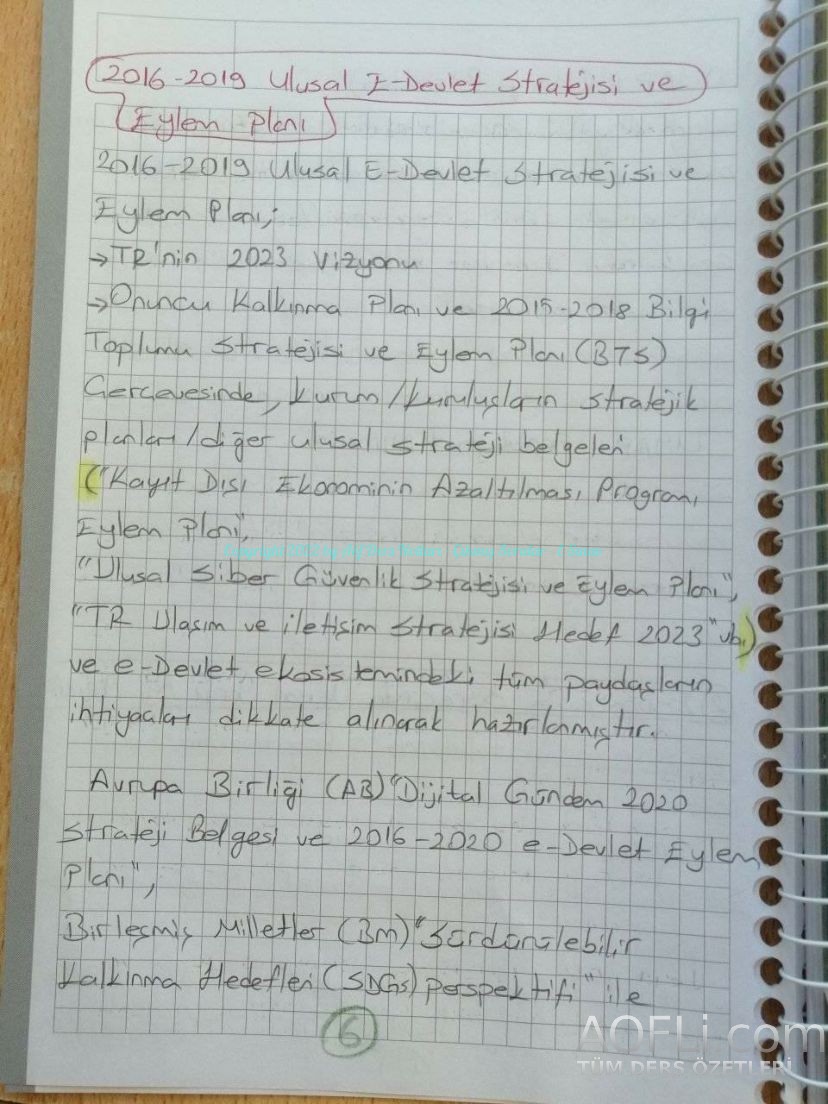 2016-2019 Ulusal E-Devlet Stratejisi ve
Eylem Planı
2016-2019 Ulusal E-Devlet Stratejisi ve
Eylem Planı;
→TR'nin 2023 Vizyonu
→Onuncu Kalkınma Planı ve 2015-2018 Bilgi
Toplumu Stratejisi ve Eylem Planı (BTS)
Çerçevesinde, kurum/kuruluşların stratejik
planları/diğer ulusal strateji belgeleri
("Kayıt Dışı Ekonominin Azaltılması Programı
Eylem Planı",
"Ulusal Siber Güvenlik Stratejisi ve Eylem Planı",
"TR Ulaşım ve iletişim Stratejisi Hedef 2023" vb.)
ve e-Devlet ekosistemindeki tüm paydaşların
ihtiyaçları dikkate alınarak hazırlanmıştır.
Avrupa Birliği (AB) "Dijital Gündem 2020
Strateji Belgesi ve 2016-2020 e-Devlet Eylem
Planı",
Birleşmiş Milletler (BM) "Sürdürülebilir
Kalkınma Hedefleri (SDGs) perspektifi" ile
6
AOFLi.com
TÜM DERS ÖZETLERİ